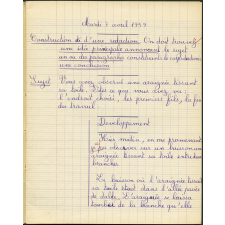 Mardi 7 avril 1959
Construction de d'une rédaction. On doit trouver
une idée principale annonçant le sujet
un ou des paragraphes constituant le
une conclusion
Sujet Vous avez observé une araignée tissant
sa toile. Dites ce que vous avez vu :
l'endroit choisi, les premiers fils, la fin
du travail
Développement
Hier matin, en me promenant
j'ai observé sur un buisson une
araignée tissant sa toile entre deux
branches.
Le buisson où l'araignée tissait
sa toile était dans l'allée
de L'araignée se laissa
tomber de la branche qu'elle